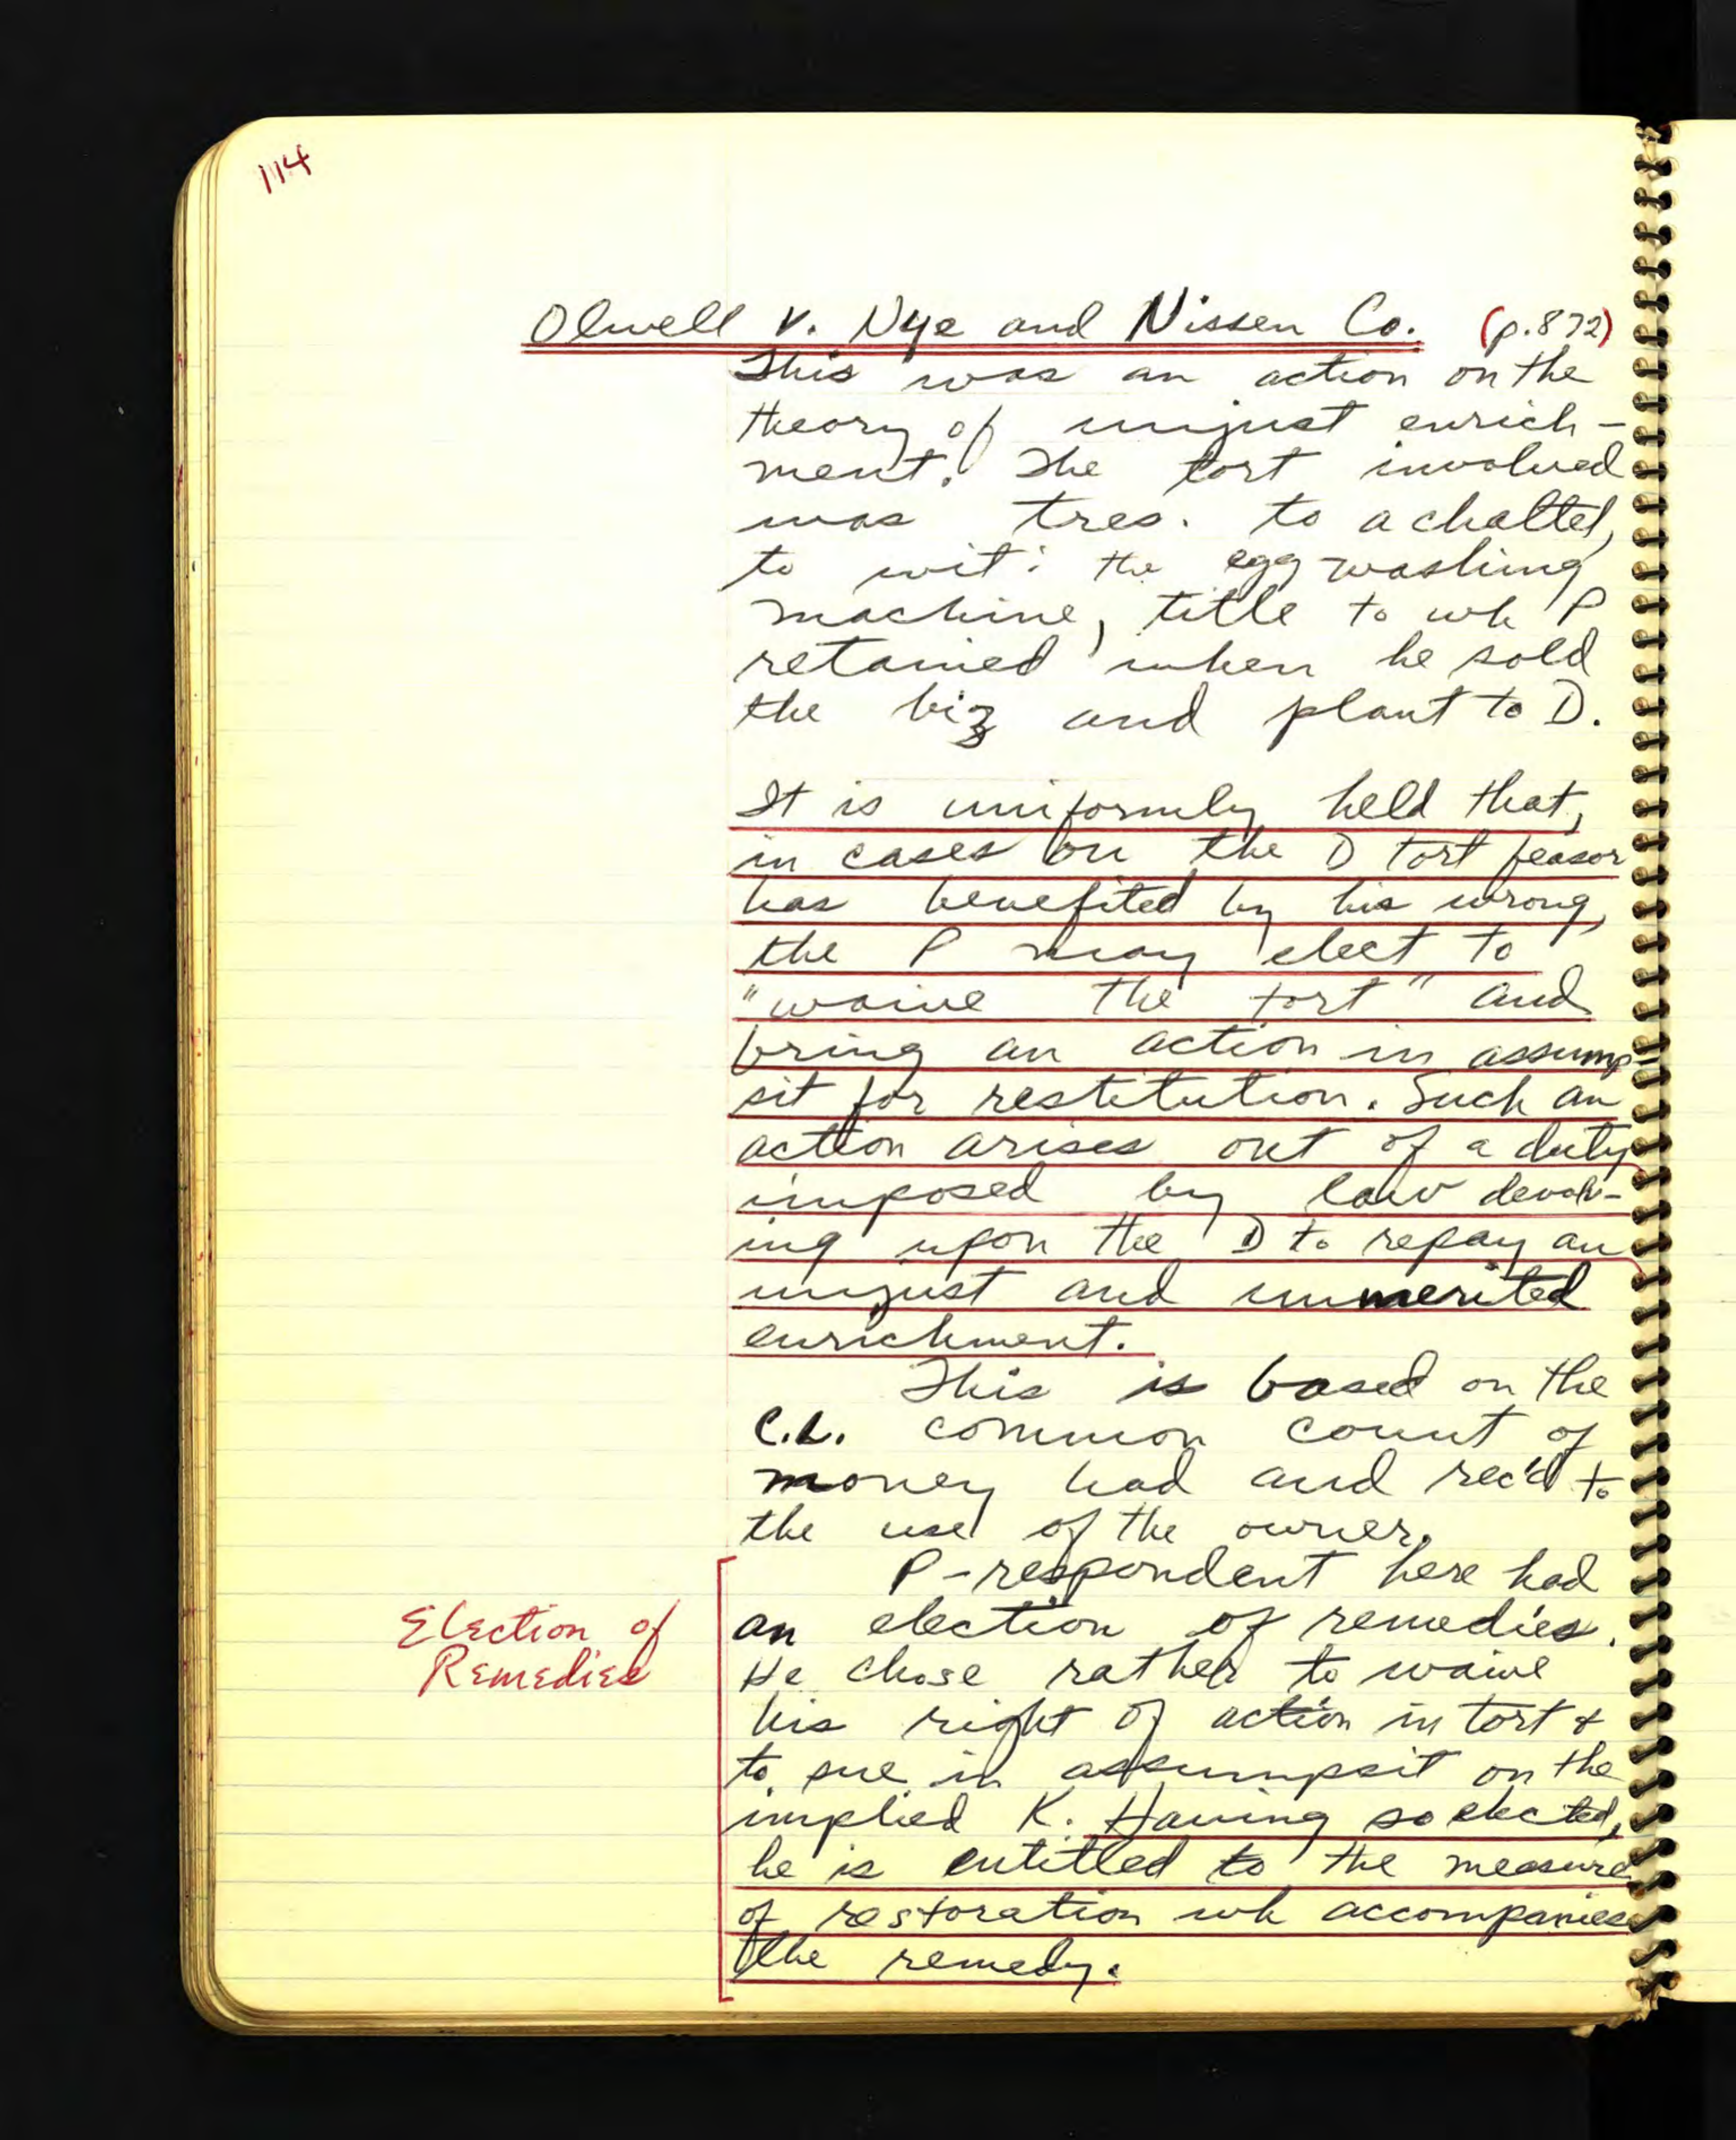 114
Olwell v. Nye and Nissen Co. (p.872)
This was an action on the
theory of unjust enrich-
ment. The tort involved
was tres. to a chattel,
to wit: the egg washing
machine, title to wh P
retained when he sold
the biz and plant to D.
It is uniformly held that,
in cases the D tort feasor
has benefited by his wrong,
the P may elect to
"waive the tort" and
bring an action in assump-
sit for restitution. Such an
action arises out of a duty
imposed by law devolv-
ing upon the D to repay an
unjust and unmerited
enrichment.
This is based on the
C.L. common count of
money had and rec'd to
the use of the owner.
P-respondent here had
an election of remedies.
Election of
Remedies
He chose rather to waive
his right of action in tort &
to sue in assumpsit on the
implied K. Having so elected,
he is entitled to the measure
of restoration wh accompanies
the remedy.